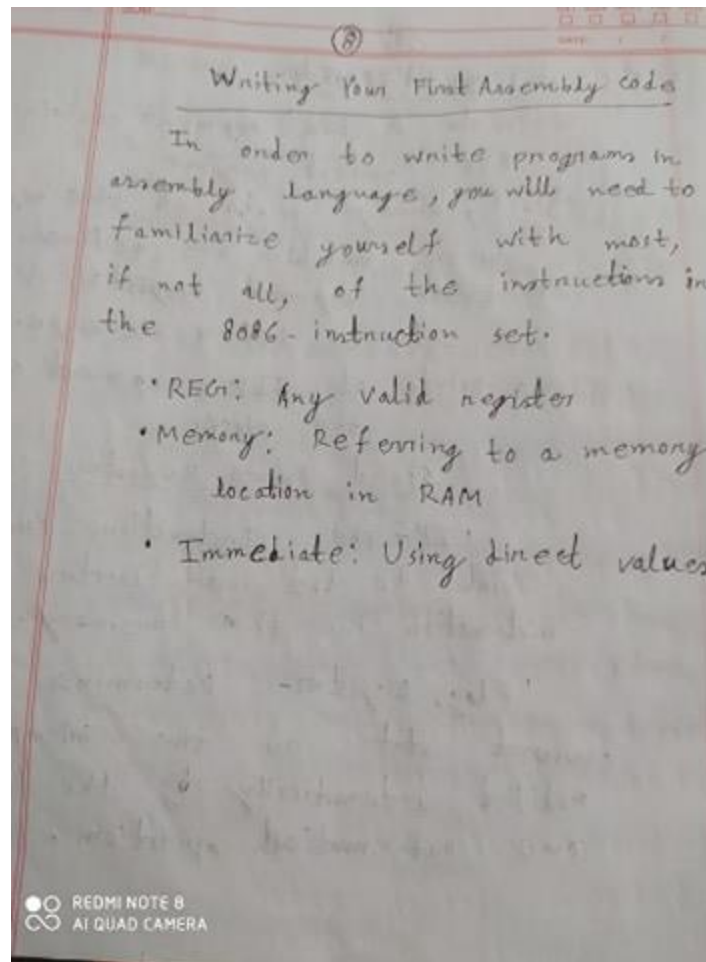 8
Writing Your First Assembly code
In order to write programs in
assembly language, you will need to
familiarize yourself with most,
if not all, of the instructions in
the 8086-instruction set.
• REG: Any valid register
• Memory: Referring to a memory
location in RAM
• Immediate: Using direct values
REDMI NOTE 8
AI QUAD CAMERA